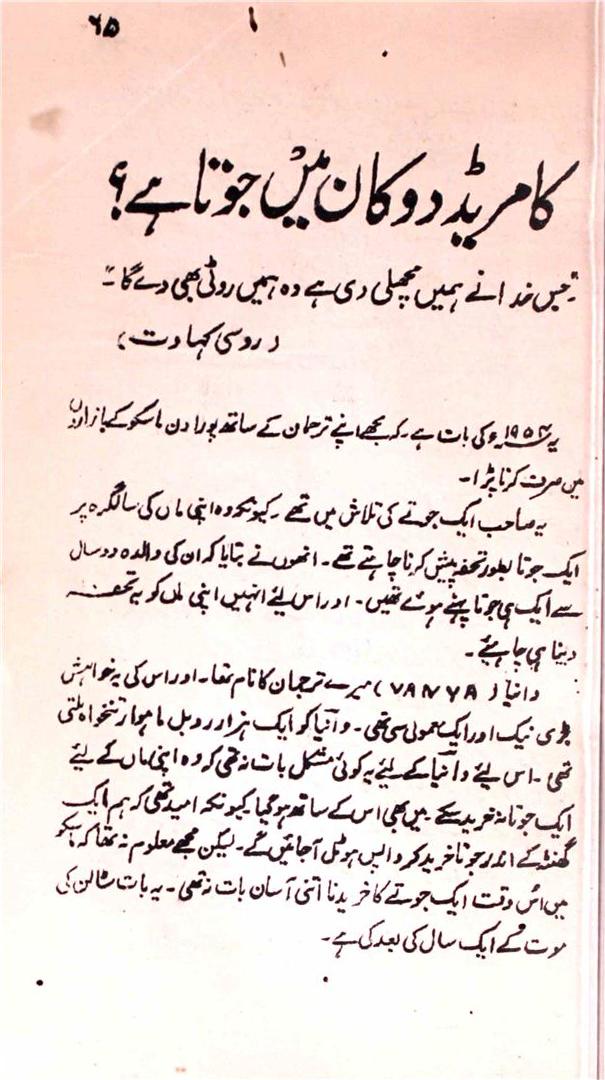 ۶۵
کامریڈ دوکان میں جوتا ہے؟
"جس خدا نے ہمیں مچھلی دی ہے وہ ہمیں روٹی بھی دے گا۔"
(روسی کہاوت)
یہ ۱۹۵۴ء کی بات ہے۔ کہ مجھے اپنے ترجمان کے ساتھ پورا دن ماسکو کے بازاروں
میں صرف کرنا پڑا۔
یہ صاحب ایک جوتے کی تلاش میں تھے۔ کیونکہ وہ اپنی ماں کی سالگرہ پر
ایک جوتا بطور تحفہ پیش کرنا چاہتے تھے۔ انھوں نے بتایا کہ ان کی والدہ دو سال
سے ایک ہی جوتا پہنے ہوئے تھیں۔ اور اس لئے انہیں اپنی ماں کو یہ تحفہ
دینا ہی چاہیئے۔
وانیا (VANYA) میرے ترجمان کا نام تھا۔ اور اس کی یہ خواہش
بڑی نیک اور ایک معمولی سی تھی۔ وانیا کو ایک ہزار روبل ماہوار تنخواہ ملتی
تھی۔ اس لئے وانیا کے لئے یہ کوئی مشکل بات نہ تھی کہ وہ اپنی ماں کے لئے
ایک جوتا نہ خرید سکے۔ میں بھی اس کے ساتھ ہو گیا کیونکہ امید تھی کہ ہم ایک
گھنٹہ کے اندر جوتا خرید کر واپس ہوٹل آ جائیں گے۔ لیکن مجھے معلوم نہ تھا کہ ماسکو
میں اُس وقت ایک جوتے کا خریدنا اتنی آسان بات نہ تھی۔ یہ بات سٹالن کی
موت کے ایک سال کی بعد کی ہے۔